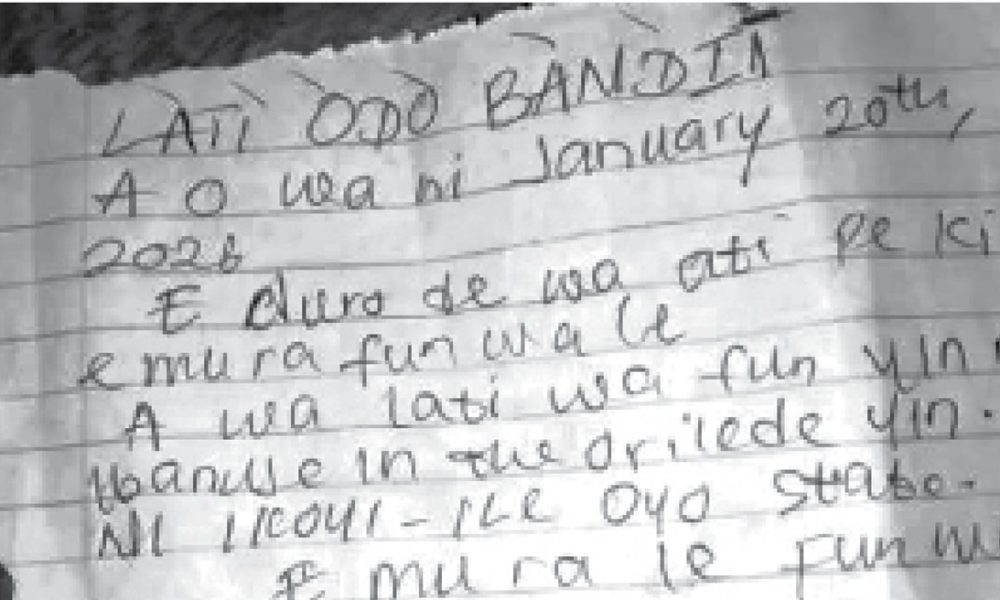 LÀTI ÒDÒ BÀNDÍÌ
A O wa ni January 20th,
2026
E duro de wa ati pe ki
e mura fun wa le
A wa lati wa fun yin
in the orilede yin.
NI IKOYI-ILE OYO state.
E mu ra le fun